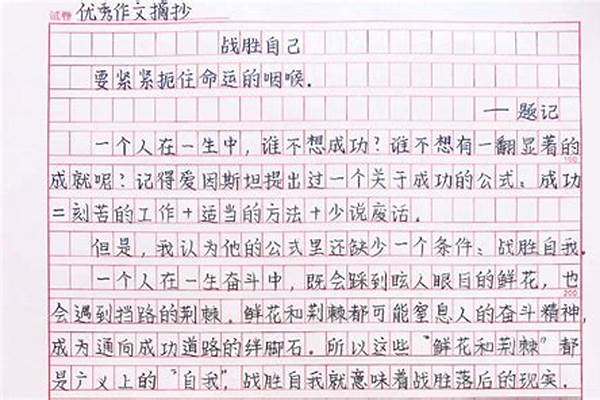 试卷 优秀作文摘抄
战胜自己
要紧紧扼住命运的咽喉.
——题记
一个人在一生中,谁不想成功?谁不想有一翻显著的
100
成就呢?记得爱因斯坦提出过一个关于成功的公式:成功
=刻苦的工作+适当的方法+少说废话.
但是,我认为他的公式里还缺少一个条件:战胜自我.
一个人在一生奋斗中,既会踩到眩人眼目的鲜花,也
200
会遇到挡路的荆棘.鲜花和荆棘都可能窒息人的奋斗精神,
成为通向成功道路的绊脚石.所以这些"鲜花和荆棘"都
是广义上的"自我",战胜自我就意味着战胜落后的现实.